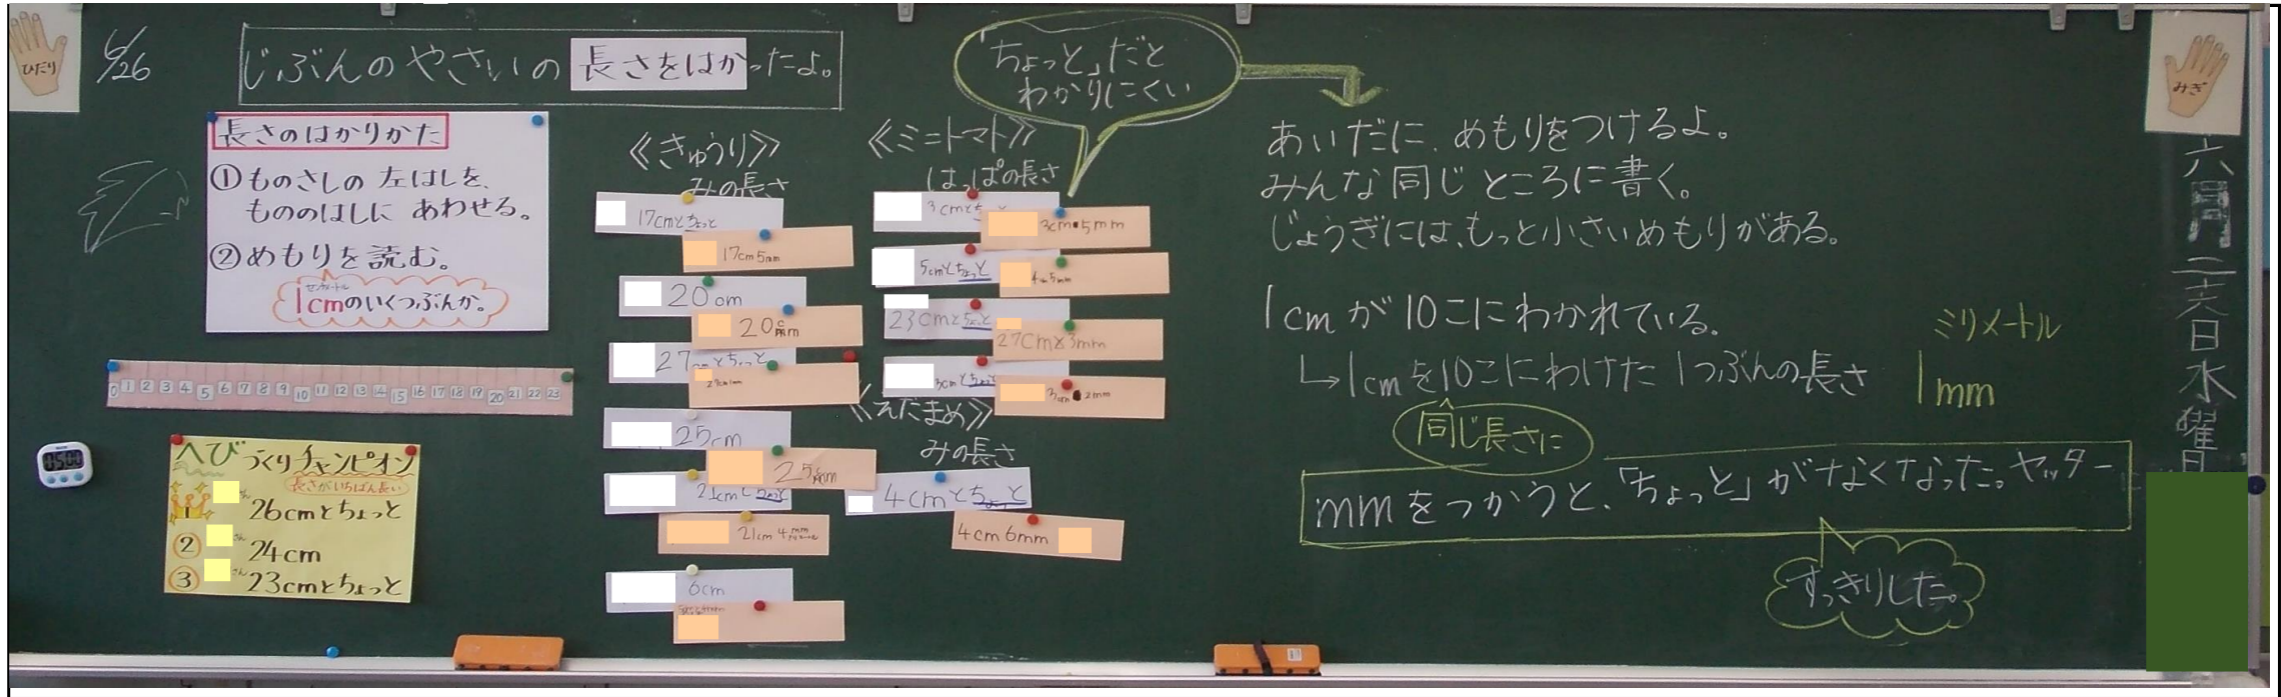 ひだり
6/26
じぶんのやさいの長さをはかったよ。
長さのはかりかた
①ものさしの左はしを、
もののはしにあわせる。
②めもりを読む。
センチメートル
1cmのいくつぶんか。
0 1 2 3 4 5 6 7 8 9 10 11 12 13 14 15 16 17 18 19 20 21 22 23
へびづくりチャンピオン
長さがいちばん長い
1 さん 26cmとちょっと
② さん 24cm
③ さん 23cmとちょっと
≪きゅうり≫
みの長さ
17cmとちょっと
17cm5mm
20cm
20cm
27cmとちょっと
27cm1mm
25cm
25cm
21cmとちょっと
21cm4mm
6cm
≪ミニトマト≫
はっぱの長さ
3cmとち
3cm5mm
5cmとちょっと
4cm5mm
23cmとちょっと
27cmと3mm
3cmとちょっと
3cm2mm
≪えだまめ≫
みの長さ
4cmとちょっと
4cm6mm
「ちょっと」だと
わかりにくい
あいだに、めもりをつけるよ。
みんな同じところに書く。
じょうぎには、もっと小さいめもりがある。
1cmが10こにわかれている。
↳1cmを10こにわけた1つぶんの長さ
同じ長さに
ミリメートル
1mm
mmをつかうと、「ちょっと」がなくなった。ヤッター
すっきりした。
みぎ
六月二六日水曜日